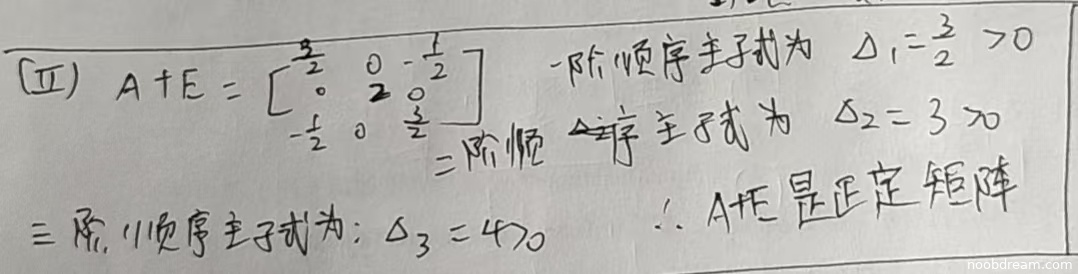 (II) A+E = [ 3/2 0 -1/2
0 2 0
-1/2 0 3/2 ]
一阶顺序主子式为 Δ₁=3/2 >0
二阶顺序主子式为 Δ₂=3>0
三阶顺序主子式为: Δ₃=4>0
∴ A+E是正定矩阵
noobdream.com